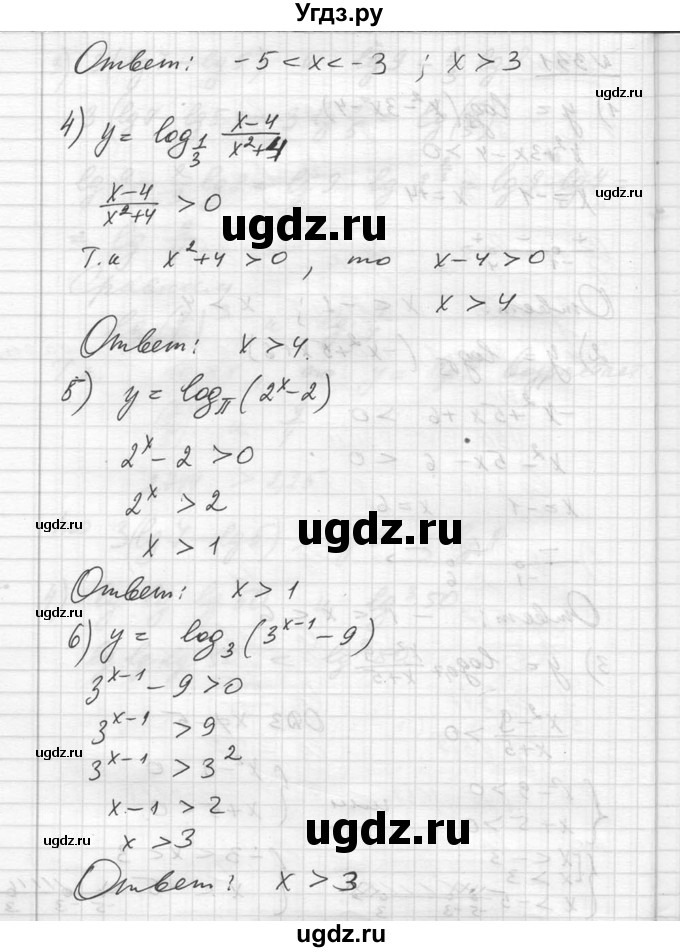 Угдз.ру
Ответ: -5 < x < -3 ; x > 3
4) y = log_{1/3} (x-4)/(x²+4)
(x-4)/(x²+4) > 0
ugdz.ru
ugdz.ru
ugdz.ru
Т.к x²+4 > 0, то x-4 > 0
x > 4
ugdz.ru
Ответ: x > 4.
5) y = log_π (2^x - 2)
2^x - 2 > 0
2^x > 2
ugdz.ru
ugdz.ru
x > 1
Ответ: x > 1
ugdz.ru
6) y = log_3 (3^{x-1} - 9)
3^{x-1} - 9 > 0
3^{x-1} > 9
ugdz.ru
3^{x-1} > 3²
x-1 > 2
ugdz.ru
ugdz.ru
x > 3
Ответ: x > 3
ugdz.ru